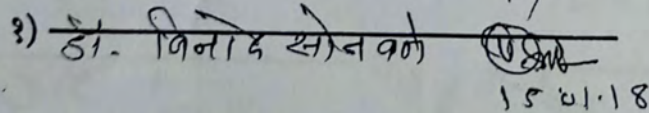 १) डॉ. विनोद सोनवने
15.01.18